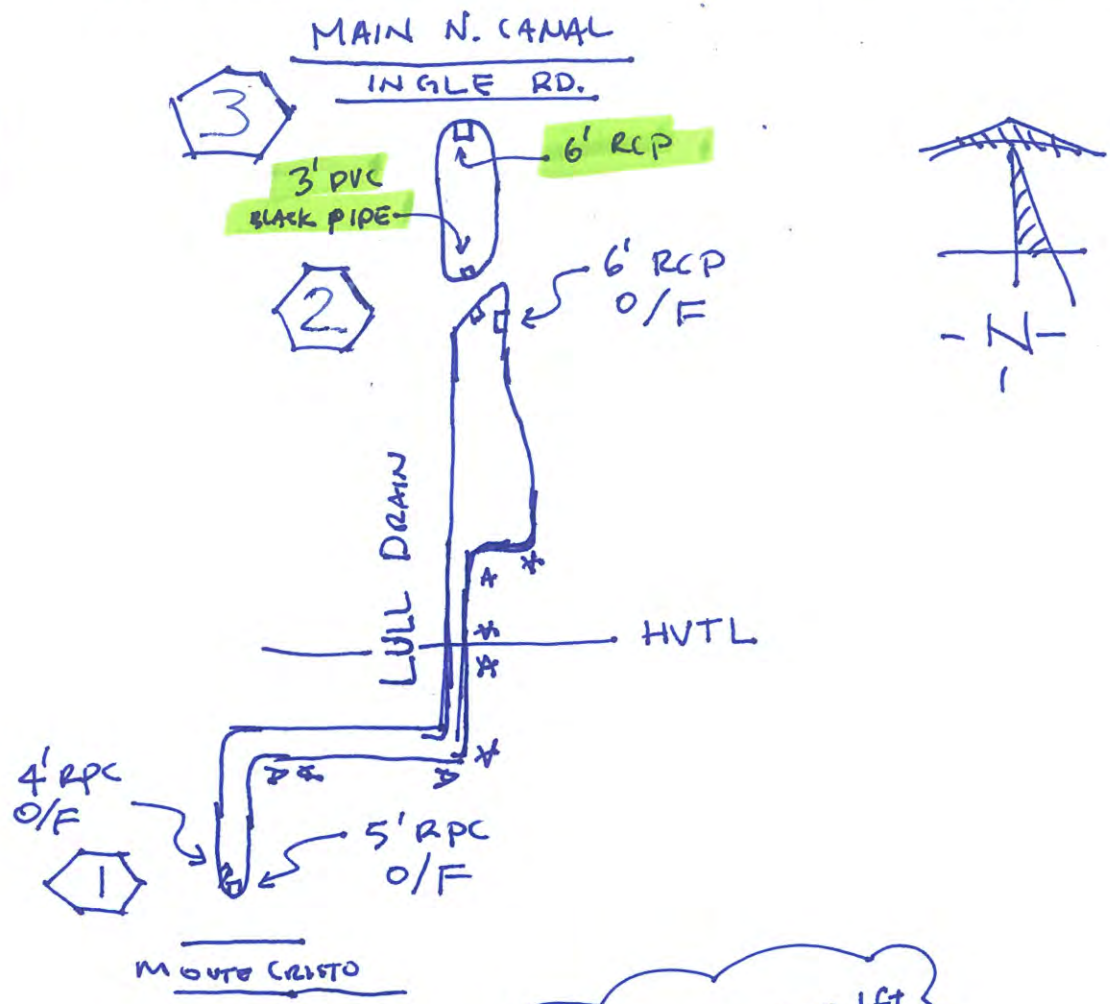 MAIN N. CANAL
INGLE RD.
3
6' RCP
3' PVC
BLACK PIPE
2
6' RCP
O/F
- N -
LULL DRAIN
HVTL
4' RPC
O/F
1
5' RPC
O/F
MONTE CRISTO
1ft